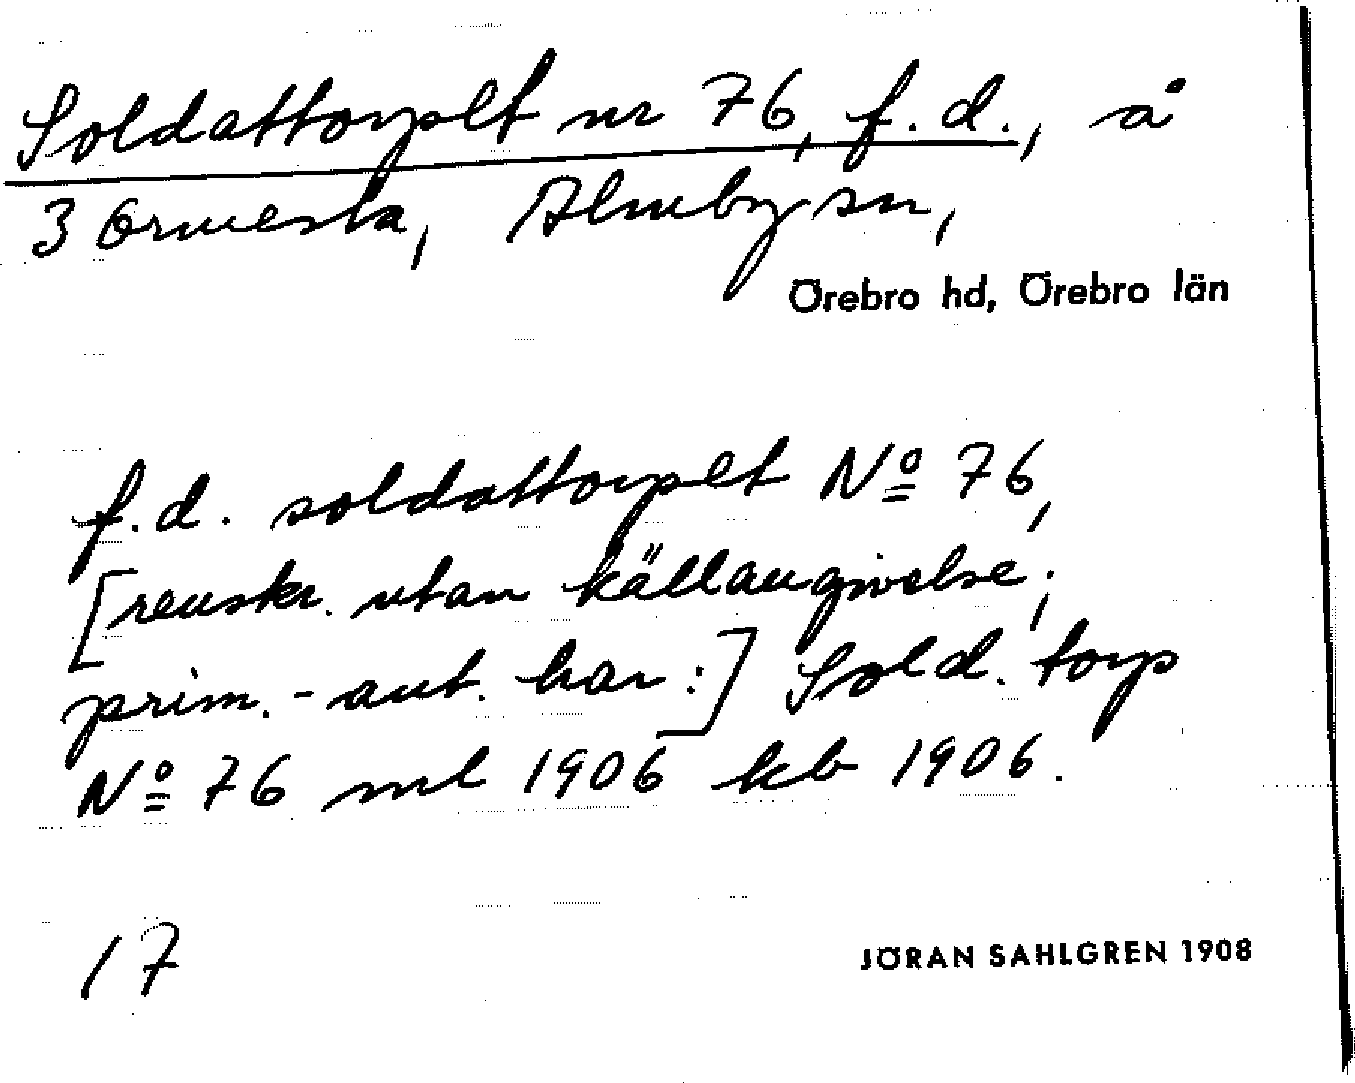 Soldattorpet nr 76, f.d., å
3 Ormesta, Almby sn,
Örebro hd, Örebro län
f.d. soldattorpet Nº 76,
[renskr. utan källangivelse;
prim.-ant. har:] Sold. torp
Nº 76 ml 1906 kb 1906.
17
JÖRAN SAHLGREN 1908